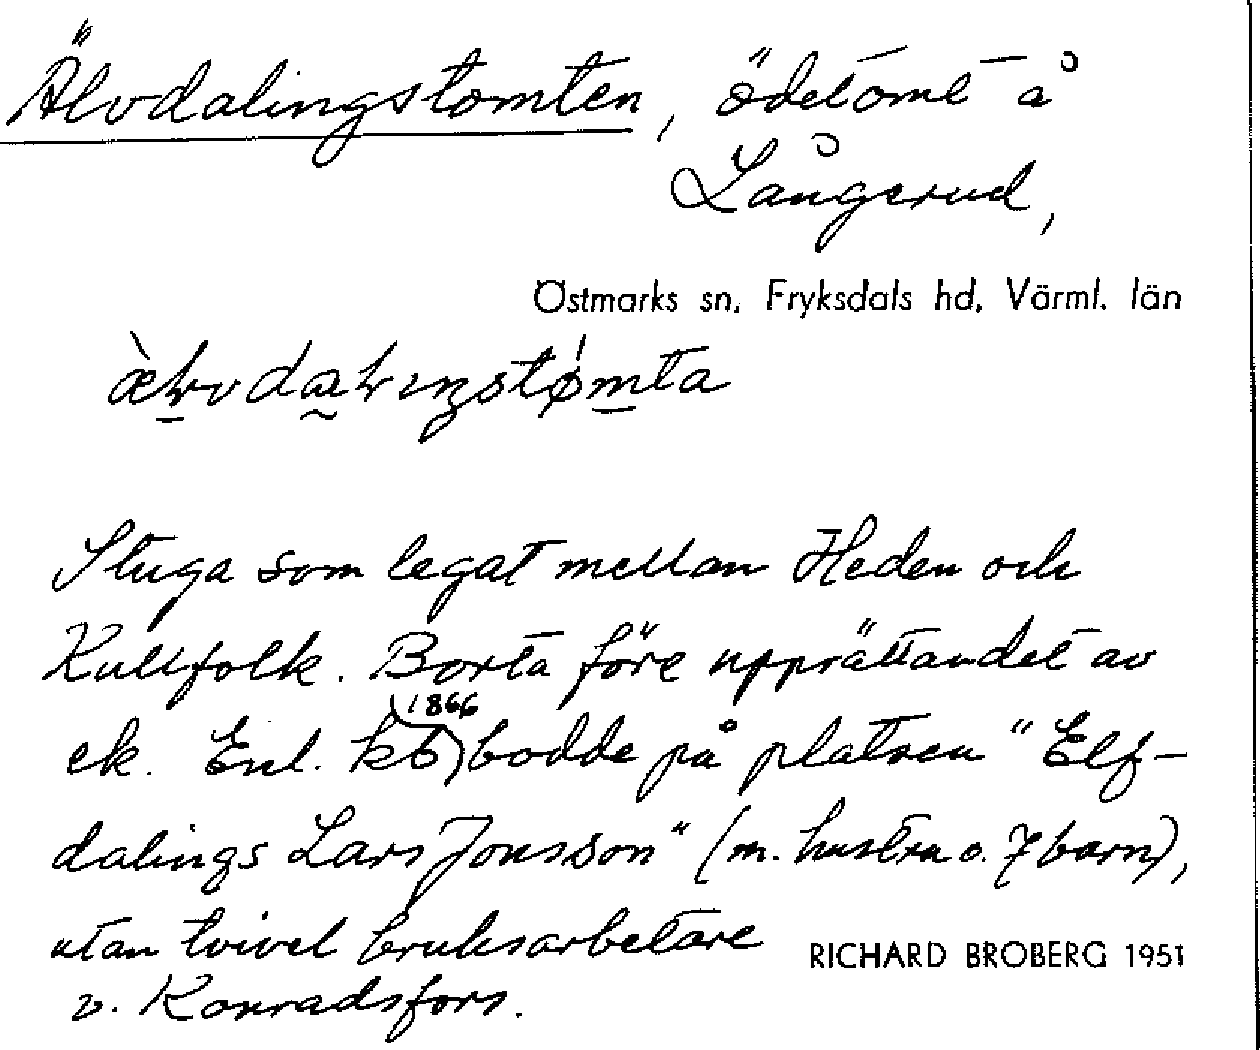 Älvdalingstomten, ödetomt å
Långerud,
Östmarks sn, Fryksdals hd, Värml. län
Stuga som legat mellan Heden och
Kullfolk. Borta före upprättandet av
ek. Enl. kb 1866 bodde på platsen "Elf-
dalings Lars Jonsson" (m. hustru o. 7 barn),
utan tvivel bruksarbetare
RICHARD BROBERG 1951
v. Konradsfors.